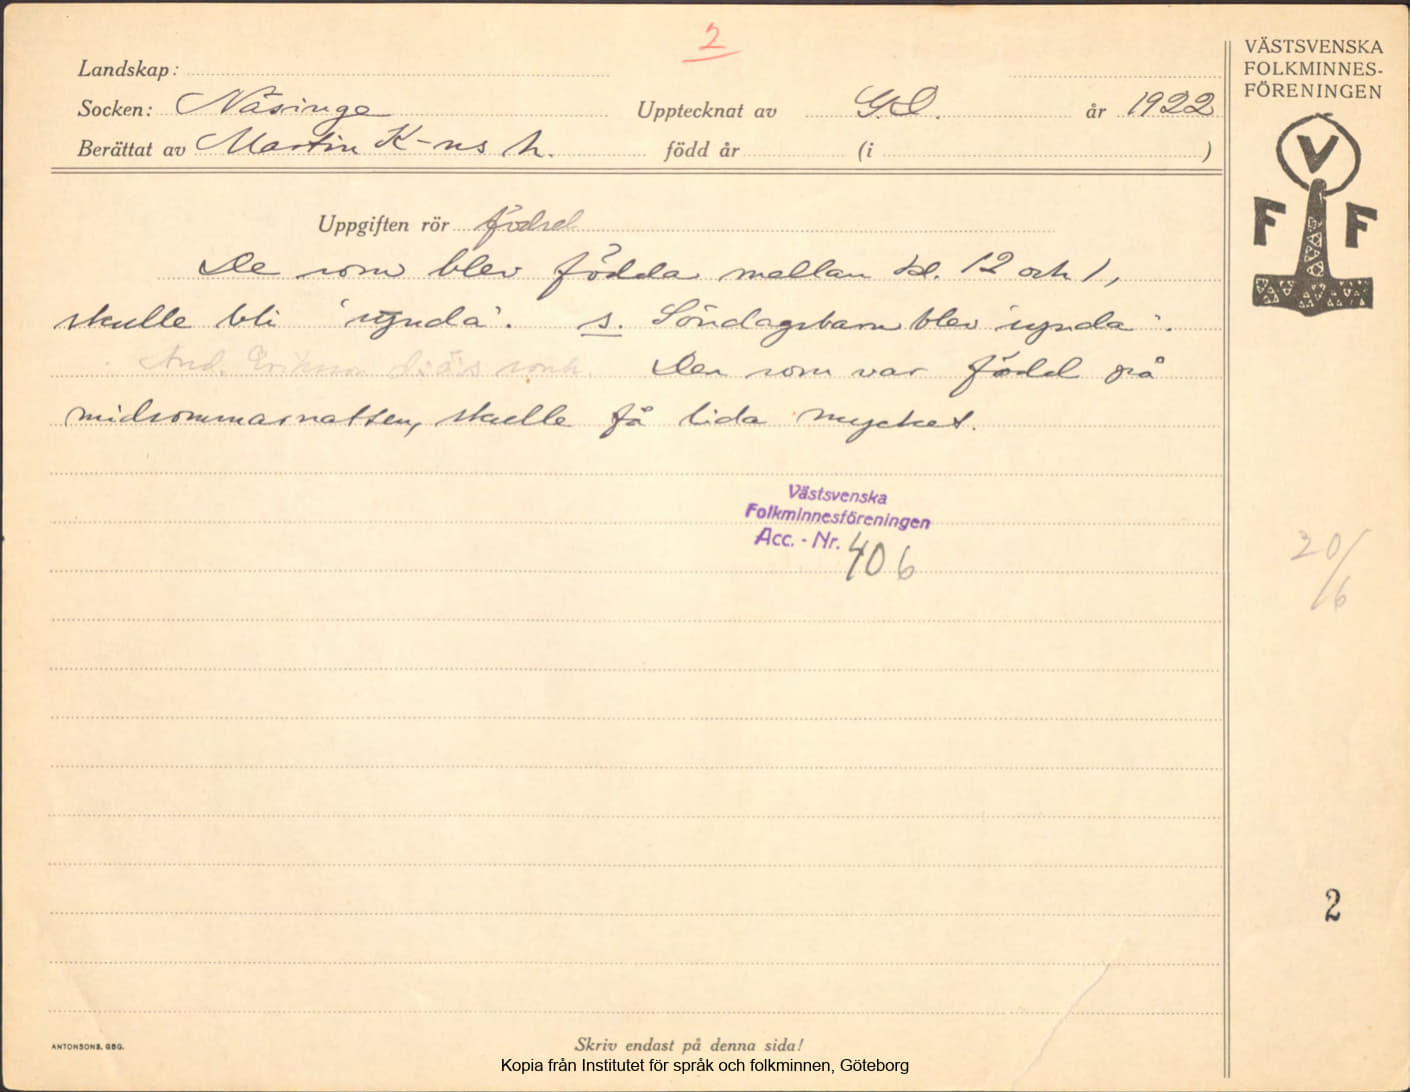 2
Landskap:
Socken: Näsinge Upptecknat av G.O. år 1922
Berättat av Martin K-ns h. född år (i )
VÄSTSVENSKA
FOLKMINNES-
FÖRENINGEN
V
F F
Uppgiften rör födsel
De som blev födda mellan kl. 12 och 1,
skulle bli "synda". s. Söndagsbarn blev "synda".
And. Den som var född på
midsommarnatten, skulle få lida mycket.
Västsvenska
Folkminnesföreningen
Acc. - Nr. 406
20/6
2
ANTONSONS, GBG.
Skriv endast på denna sida!
Kopia från Institutet för språk och folkminnen, Göteborg